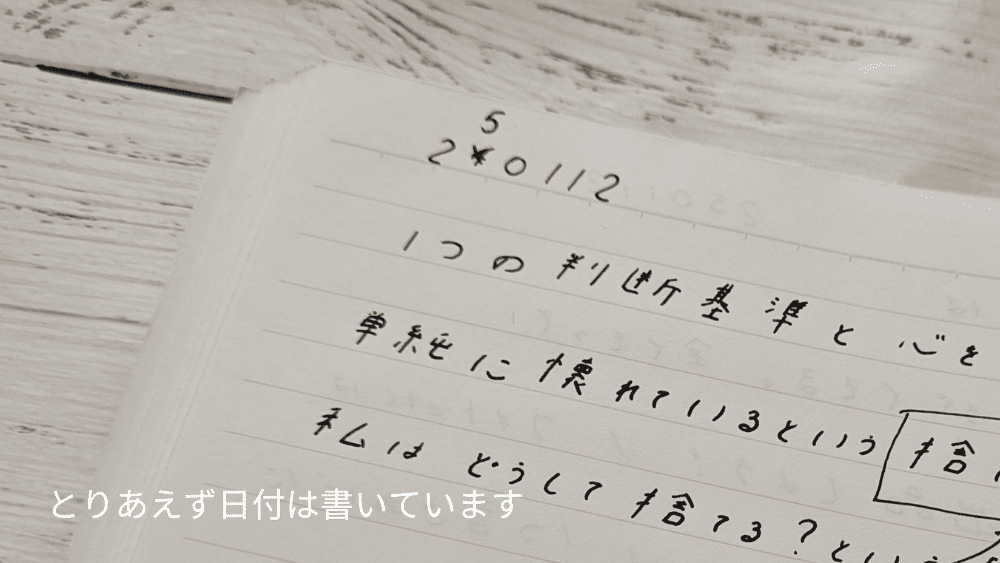 5
2*0112
1つの判断基準と心を
単純に懐れているという 捨
私はどうして捨てる?という
とりあえず日付は書いています